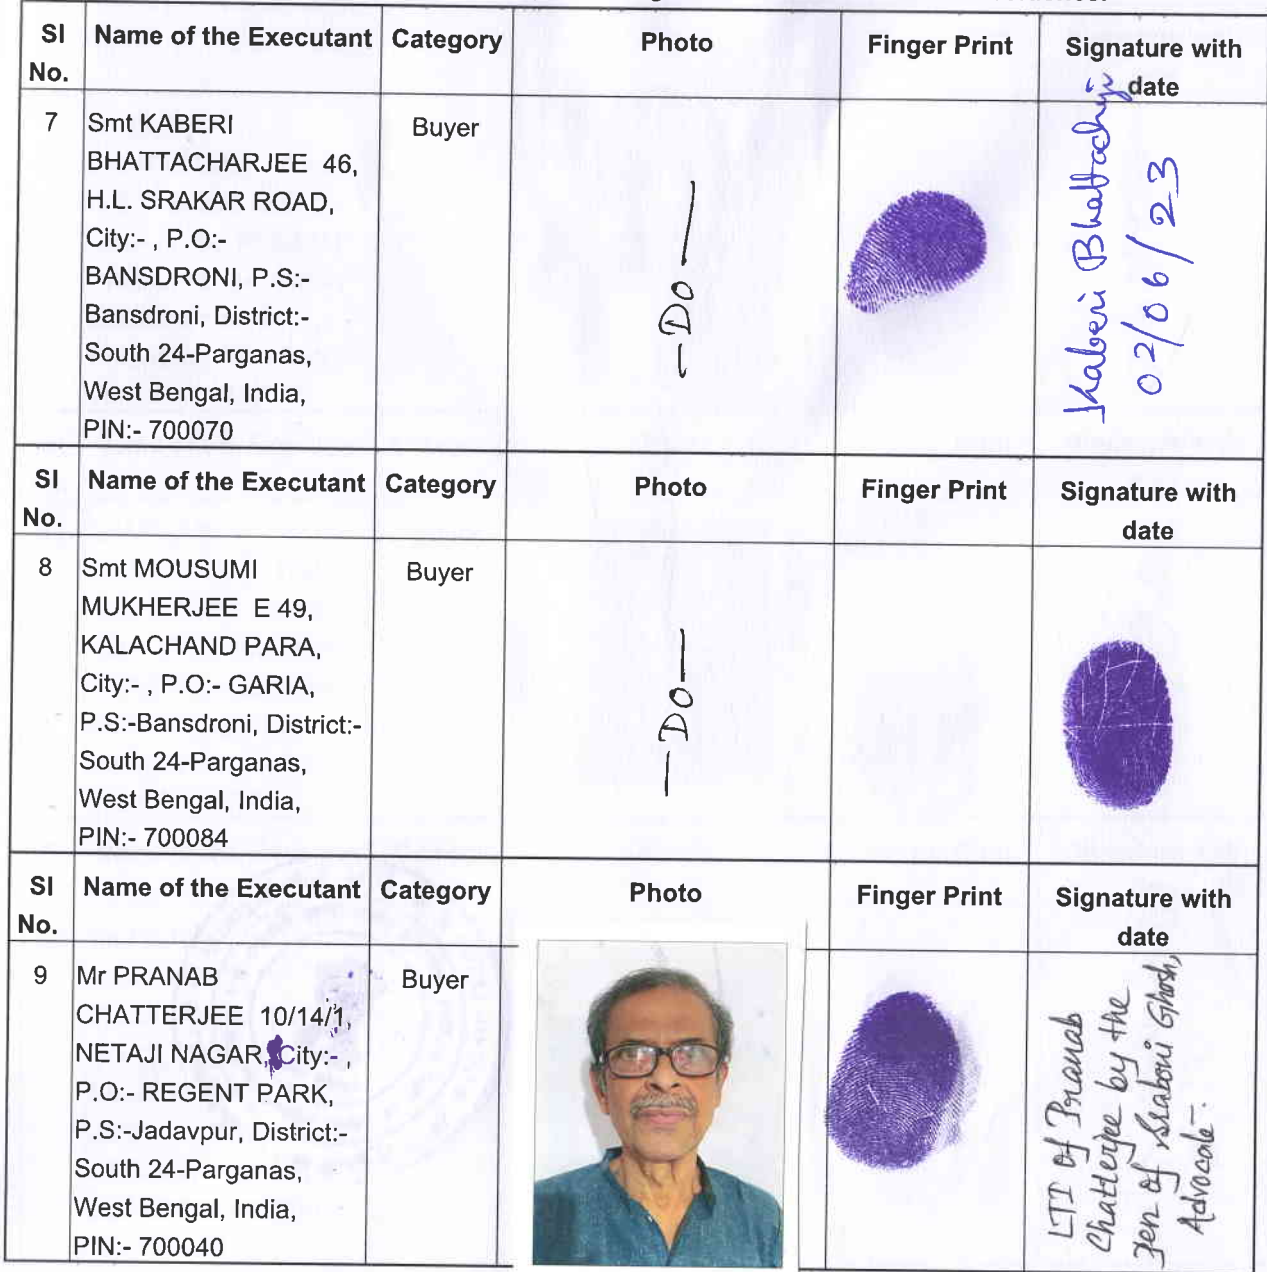 Sl No. Name of the Executant Category Photo Finger Print Signature with date
7 Smt KABERI Buyer
BHATTACHARJEE 46,
H.L. SRAKAR ROAD,
City:- , P.O:-
BANSDRONI, P.S:-
Bansdroni, District:-
South 24-Parganas,
West Bengal, India,
PIN:- 700070
-DO-
Kaberi Bhattachrji
02/06/23
Sl No. Name of the Executant Category Photo Finger Print Signature with date
8 Smt MOUSUMI Buyer
MUKHERJEE E 49,
KALACHAND PARA,
City:- , P.O:- GARIA,
P.S:-Bansdroni, District:-
South 24-Parganas,
West Bengal, India,
PIN:- 700084
-DO-
Sl No. Name of the Executant Category Photo Finger Print Signature with date
9 Mr PRANAB Buyer
CHATTERJEE 10/14/1,
NETAJI NAGAR, City:- ,
P.O:- REGENT PARK,
P.S:-Jadavpur, District:-
South 24-Parganas,
West Bengal, India,
PIN:- 700040
LTI of Pranab
Chatterjee by the
Pen of Ghosh,
Advocate-.